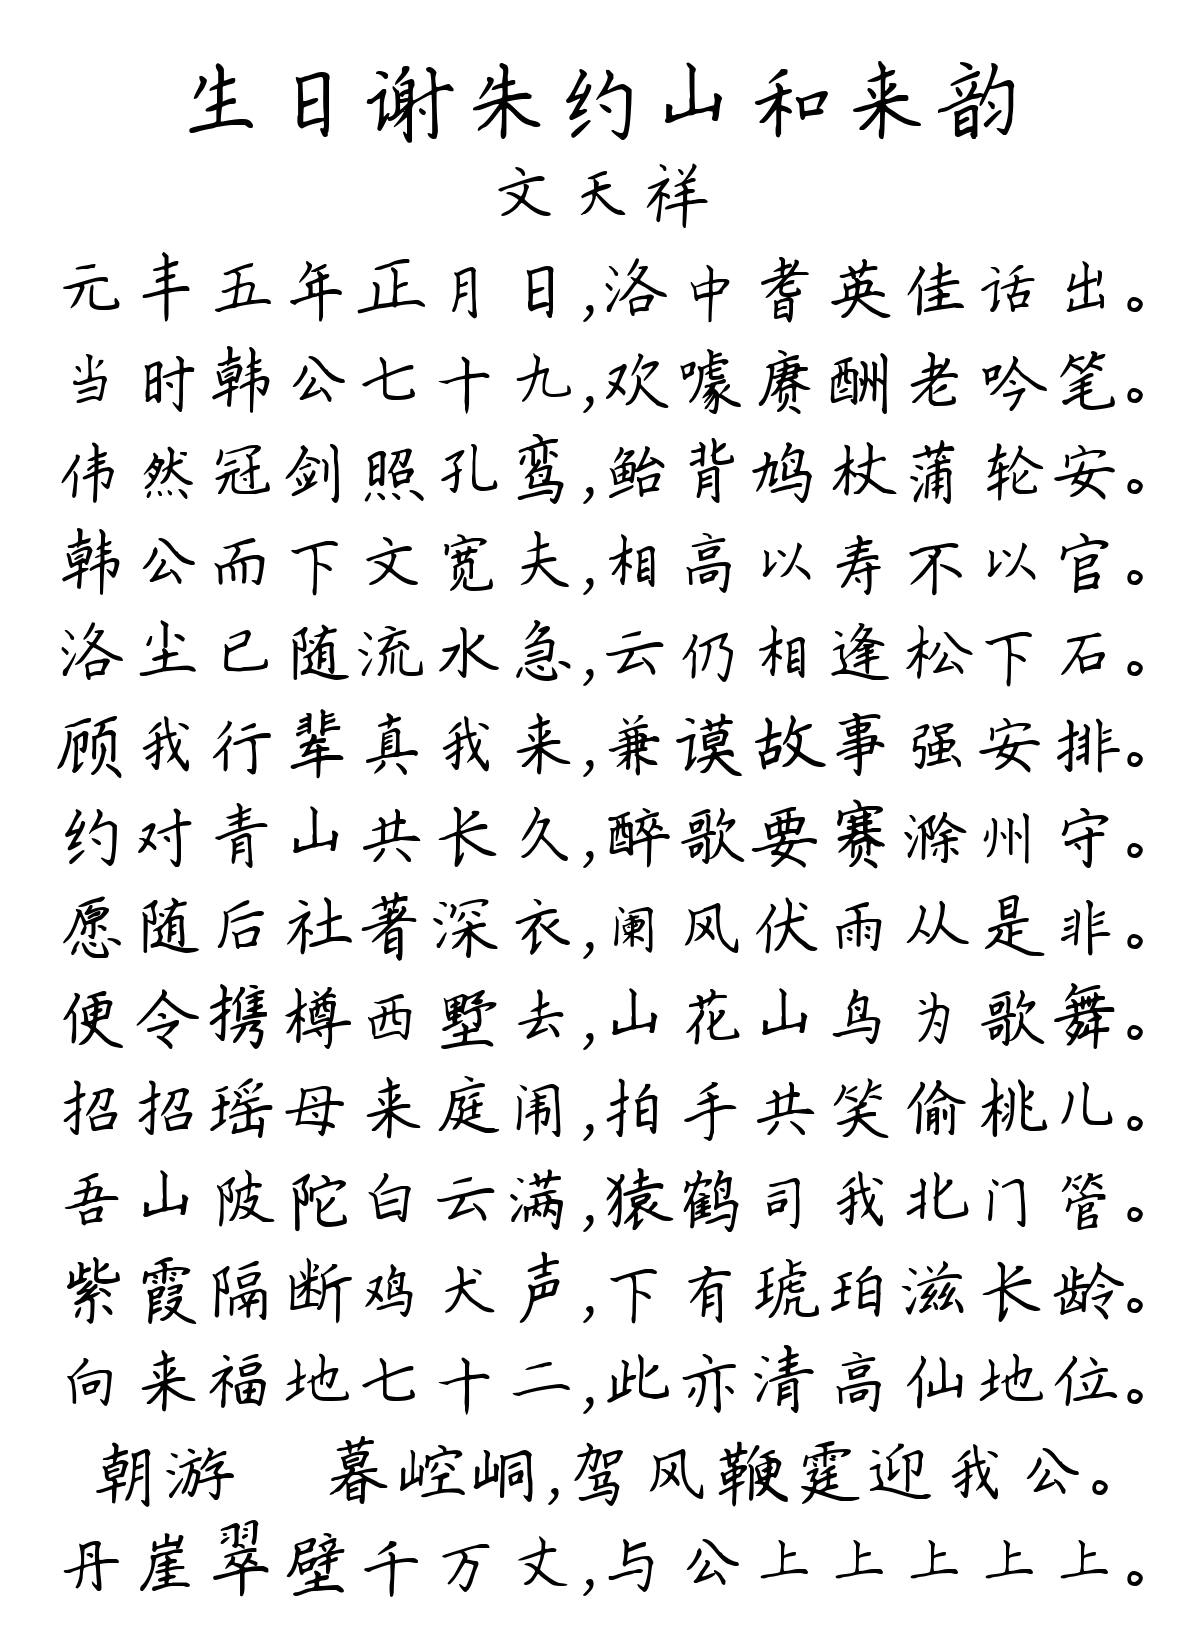 生日谢朱约山和来韵
文天祥
元丰五年正月日,洛中耆英佳话出。
当时韩公七十九,欢噱赓酬老吟笔。
伟然冠剑照孔鸾,鲐背鸠杖蒲轮安。
韩公而下文宽夫,相高以寿不以官。
洛尘已随流水急,云仍相逢松下石。
顾我行辈真我来,兼谟故事强安排。
约对青山共长久,醉歌要赛滁州守。
愿随后社著深衣,阑风伏雨从是非。
便令携樽西墅去,山花山鸟为歌舞。
招招瑶母来庭闱,拍手共笑偷桃儿。
吾山陂陀白云满,猿鹤司我北门管。
紫霞隔断鸡犬声,下有琥珀滋长龄。
向来福地七十二,此亦清高仙地位。
朝游 暮崆峒,驾风鞭霆迎我公。
丹崖翠壁千万丈,与公上上上上上。